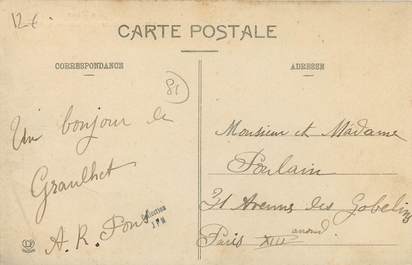 12 €
CARTE POSTALE
CORRESPONDANCE
ADRESSE
81
Un bonjour de
Graulhet
A. R. Pons
Monsieur et Madame
Poulain
31 Avenue des Gobelins
Paris XIII arrond.